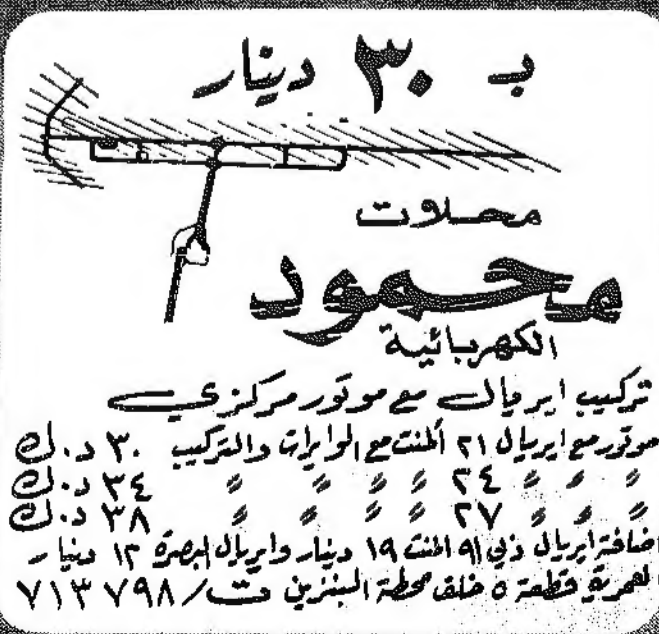 بـ ٣٠ دينار
محلات
محمود
الكهربائية
تركيب ايريال مع موتور مركزي
موتور مع ايريال ٢١ ألمنت مع الوايرات والتركيب ٣٠ د.ك
〃 〃 〃 ٢٤ 〃 〃 〃 〃 ٣٤ د.ك
〃 〃 〃 ٢٧ 〃 〃 〃 〃 ٣٨ د.ك
اضافة ايريال ذي ٩١ المنت ١٩ دينار وايريال البصرة ١٢ دينار
العمرية قطعة ٥ خلف محطة البنزين ت/٧١٣٧٩٨